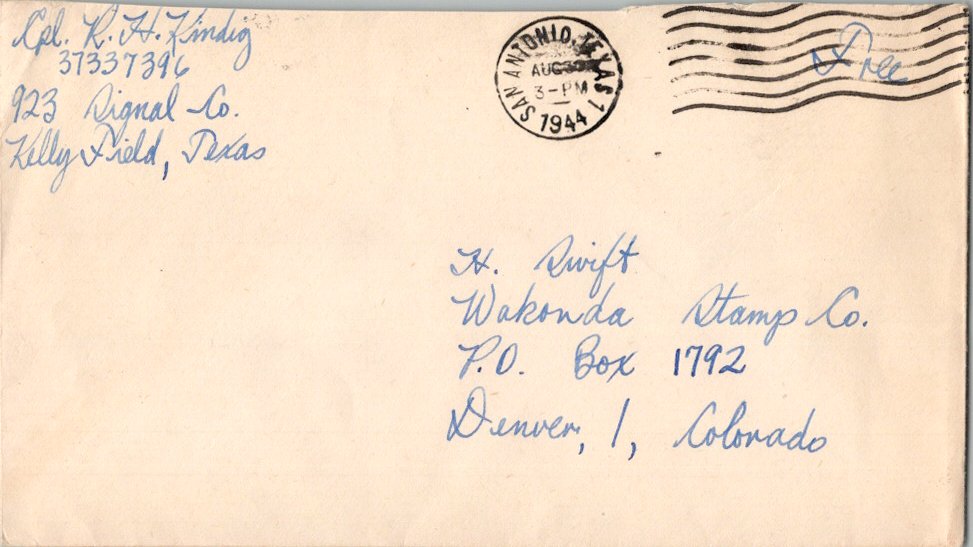 Cpl. R. H. Kindig
37337396
923 Signal Co.
Kelly Field, Texas
SAN ANTONIO, TEXAS 1
AUG 30
3-PM
1944
Free
H. Swift
Wakonda Stamp Co.
P.O. Box 1792
Denver, 1, Colorado